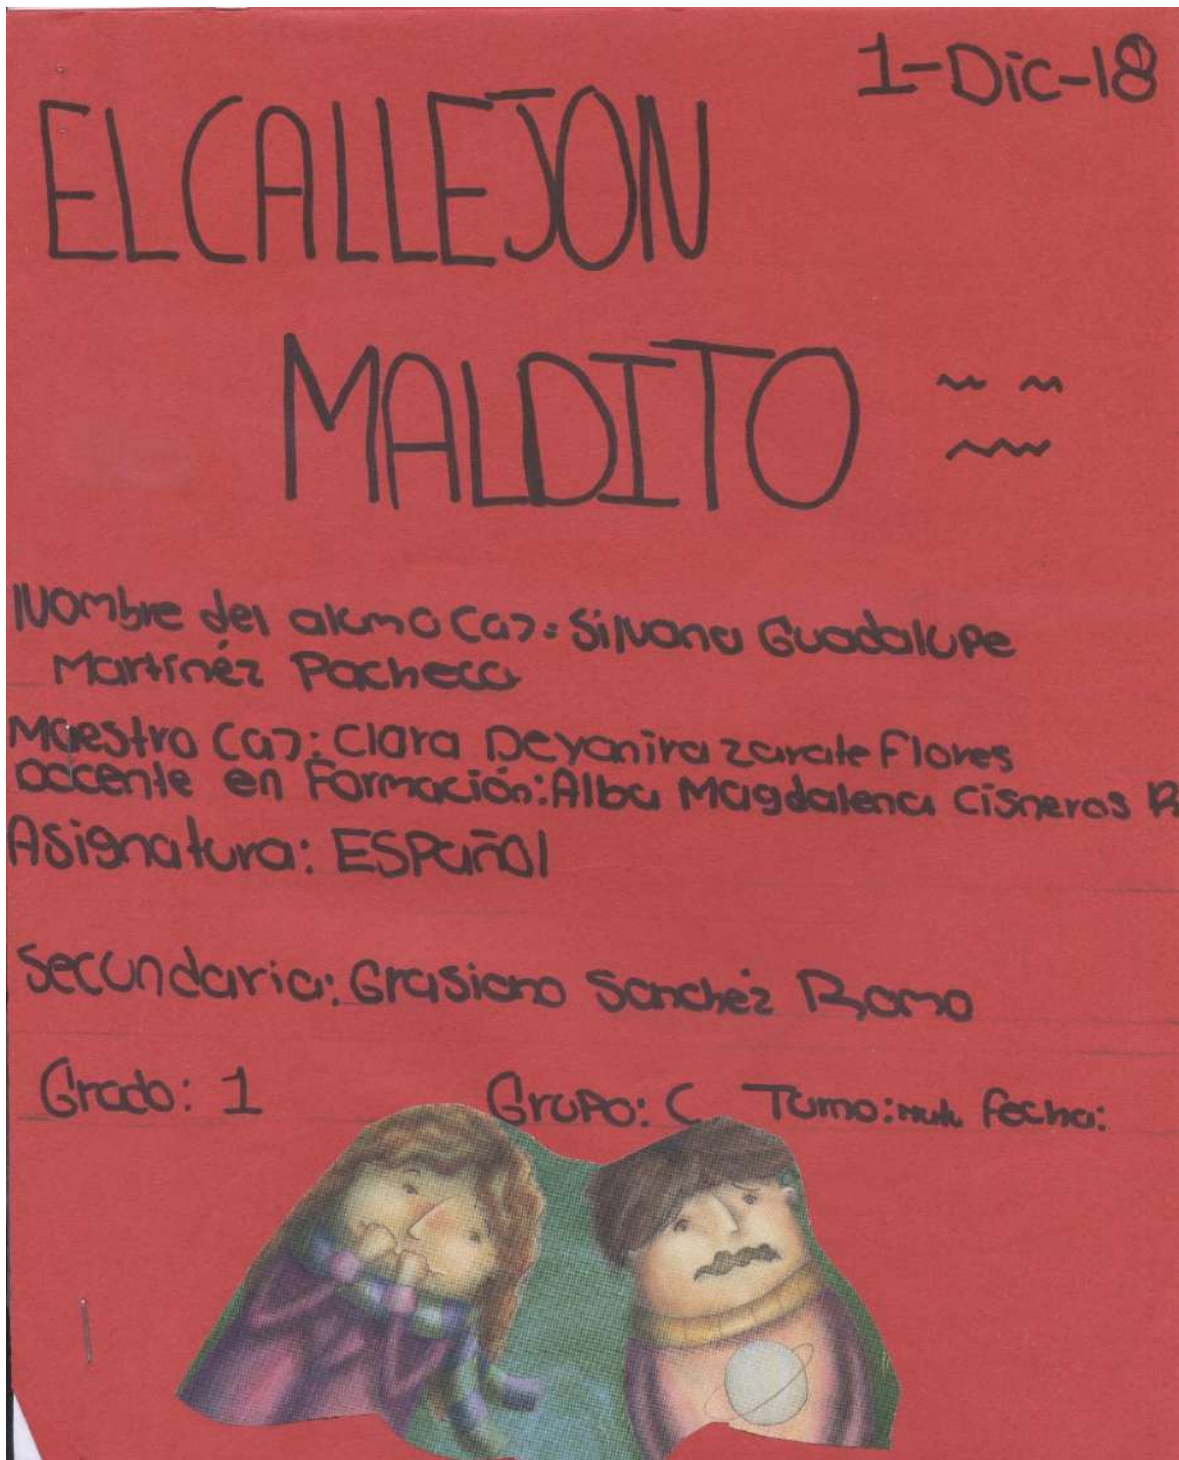 1-Dic-18
EL CALLEJON
MALDITO
Nombre del alumno (a): Silvana Guadalupe
Martínez Pacheco
Maestro (a): Clara Deyanira Zarate Flores
Docente en Formación: Alba Magdalena Cisneros R
Asignatura: ESPañol
Secundaria: Grasiano Sanchéz Romo
Grado: 1 Grupo: C Turno: fecha: